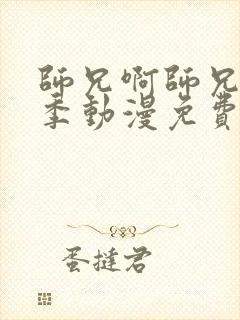 師兄啊師兄
季動漫免費
蛋撻君